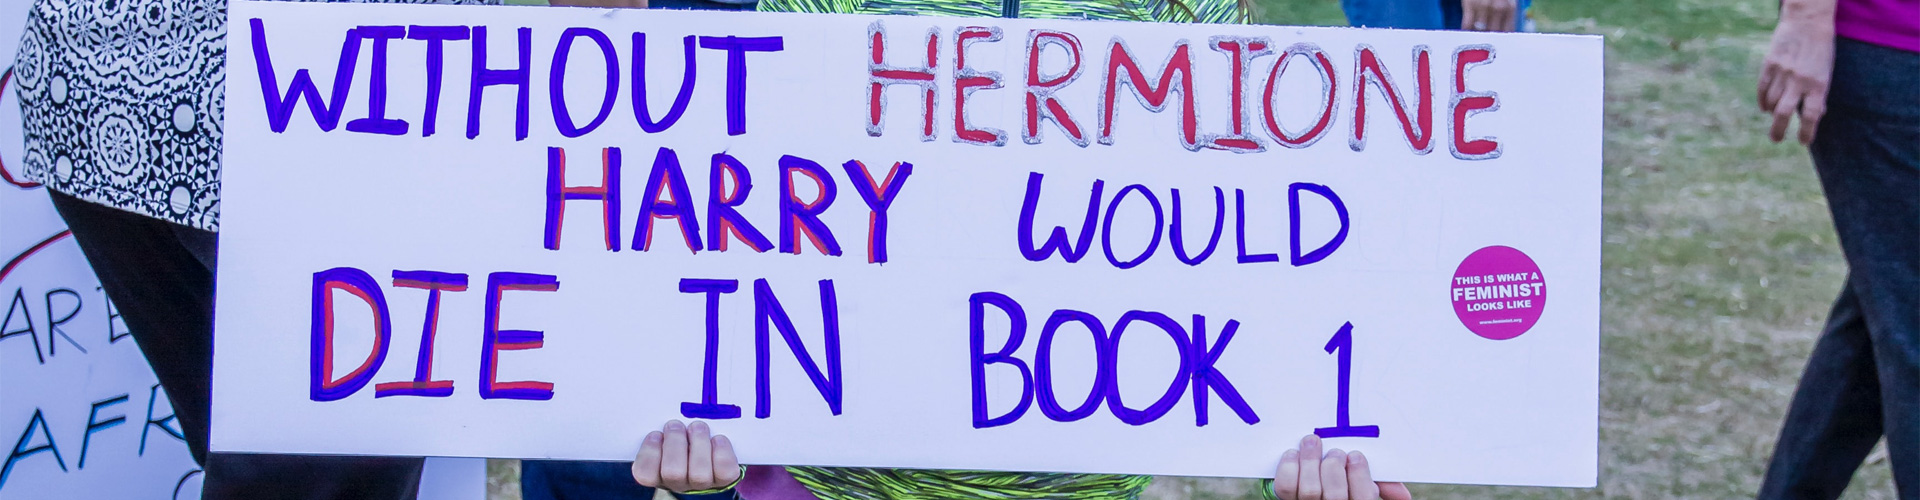 WITHOUT HERMIONE
HARRY WOULD
DIE IN BOOK 1
THIS IS WHAT A
FEMINIST
LOOKS LIKE
www.feminist.org
ARE
AFR